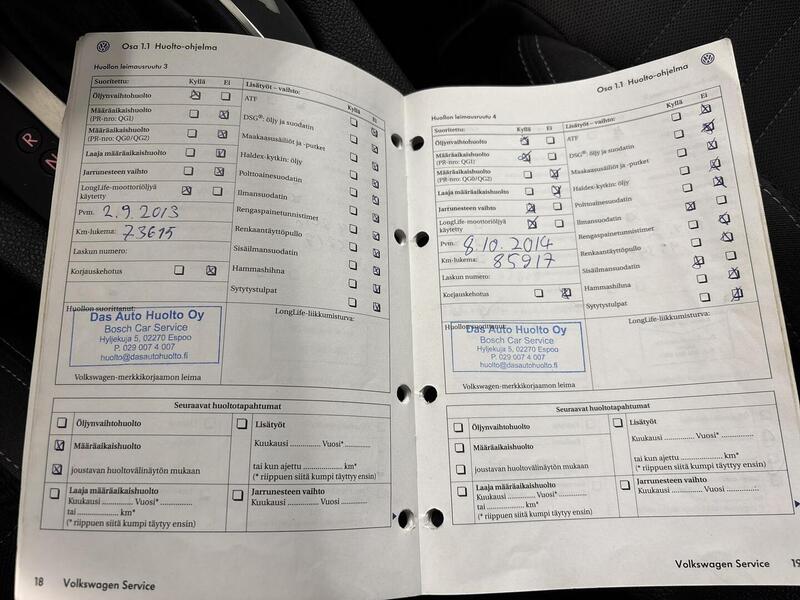 Osa 1.1 Huolto-ohjelma
Huollon leimausruutu 3
Suoritettu: Kyllä Ei
Öljynvaihtohuolto
Määräaikaishuolto
(PR-nro: QG1)
Määräaikaishuolto
(PR-nro: QG0/QG2)
Laaja määräaikaishuolto
Jarrunesteen vaihto
LongLife-moottoriöljyä
käytetty
Pvm. 2.9.2013
Km-lukema: 73615
Laskun numero:
Korjauskehotus
Lisätyöt – vaihto: Kyllä Ei
ATF
DSG®: öljy ja suodatin
Maakaasusäiliöt ja -putket
Haldex-kytkin: öljy
Polttoainesuodatin
Ilmansuodatin
Rengaspainetunnistimet
Renkaantäyttöpullo
Sisäilmansuodatin
Hammashihna
Sytytystulpat
Huollon suorittanut:
Das Auto Huolto Oy
Bosch Car Service
Hyljekuja 5, 02270 Espoo
P. 029 007 4 007
huolto@dasautohuolto.fi
LongLife-liikkumisturva:
Volkswagen-merkkikorjaamon leima
Seuraavat huoltotapahtumat
Öljynvaihtohuolto
Määräaikaishuolto
joustavan huoltovälinäytön mukaan
Laaja määräaikaishuolto
Kuukausi .............. Vuosi* ..............
tai .................... km*
(* riippuen siitä kumpi täytyy ensin)
Lisätyöt
Kuukausi .............. Vuosi* ..............
tai kun ajettu .................... km*
(* riippuen siitä kumpi täytyy ensin)
Jarrunesteen vaihto
Kuukausi .............. Vuosi ..............
18 Volkswagen Service
Osa 1.1 Huolto-ohjelma
Huollon leimausruutu 4
Suoritettu: Kyllä Ei
Öljynvaihtohuolto
Määräaikaishuolto
(PR-nro: QG1)
Määräaikaishuolto
(PR-nro: QG0/QG2)
Laaja määräaikaishuolto
Jarrunesteen vaihto
LongLife-moottoriöljyä
käytetty
Pvm. 8.10.2014
Km-lukema: 85917
Laskun numero:
Korjauskehotus
Lisätyöt – vaihto: Kyllä Ei
ATF
DSG®: öljy ja suodatin
Maakaasusäiliöt ja -putket
Haldex-kytkin: öljy
Polttoainesuodatin
Ilmansuodatin
Rengaspainetunnistimet
Renkaantäyttöpullo
Sisäilmansuodatin
Hammashihna
Sytytystulpat
Huollon suorittanut:
Das Auto Huolto Oy
Bosch Car Service
Hyljekuja 5, 02270 Espoo
P. 029 007 4 007
huolto@dasautohuolto.fi
LongLife-liikkumisturva:
Volkswagen-merkkikorjaamon leima
Seuraavat huoltotapahtumat
Öljynvaihtohuolto
Määräaikaishuolto
joustavan huoltovälinäytön mukaan
Laaja määräaikaishuolto
Kuukausi .............. Vuosi* ..............
tai .................... km*
(* riippuen siitä kumpi täytyy ensin)
Lisätyöt
Kuukausi .............. Vuosi* ..............
tai kun ajettu .................... km*
(* riippuen siitä kumpi täytyy ensin)
Jarrunesteen vaihto
Kuukausi .............. Vuosi ..............
Volkswagen Service 19
R
N